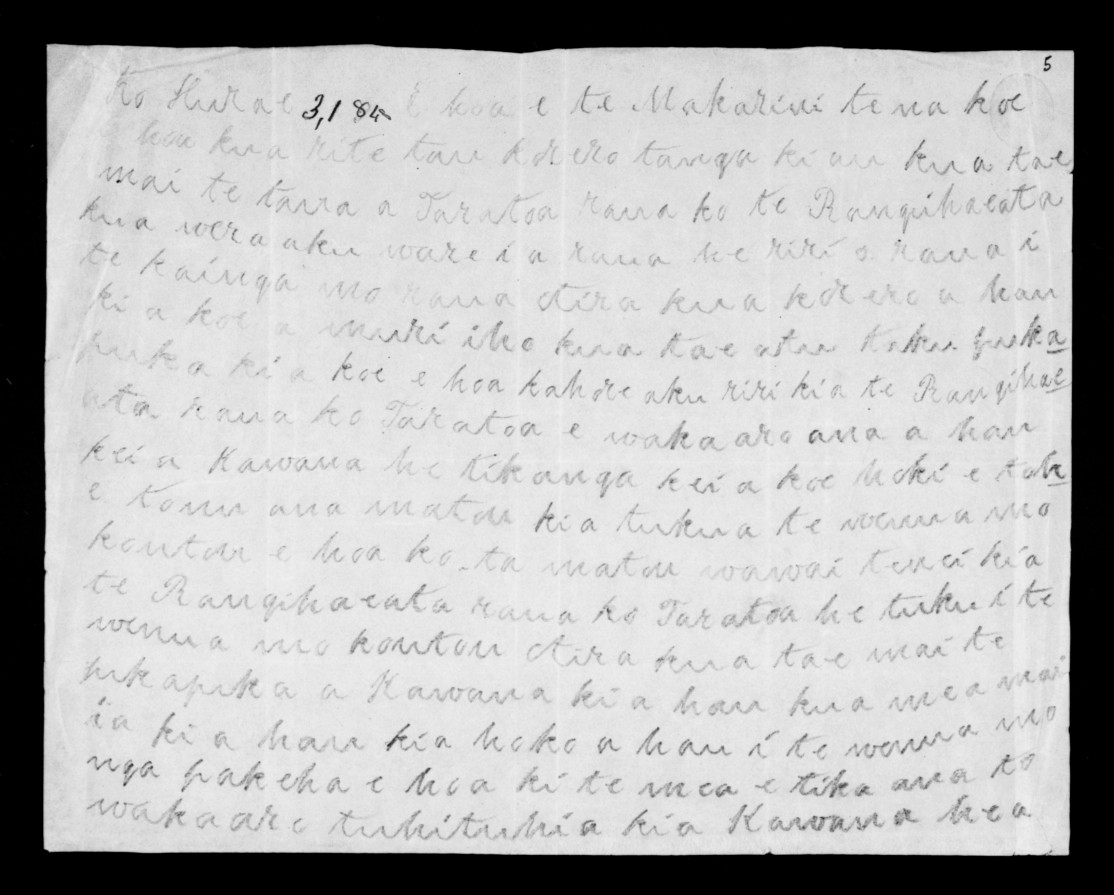 5
Ko Hurae 3,1 85 E hoa e te Makarini tena koe
hoa kua rite tau korero tanga ki au kua tae
mai te taua a Taratoa raua ko te Rangihaeata
kua wera aku ware i a raua he riri o raua i
te kainga mo raua otira kua korero a hau
ki a koe a muri iho kua tae atu taku puka
puka ki a koe e hoa kahore aku riri kia te Rangihae
ata raua ko Taratoa e wakaaro ana a hau
kei a Kawana he tikanga kei a koe hoki e tohe
e tonu ana matou kia tukua te wenua mo
koutou e hoa ko ta matou wawai tenei kia
te Rangihaeata raua ko Taratoa he tuku i te
wenua mo koutou otira kua tae mai te
pukapuka a Kawana ki a hau kua mea mai
ia ki a hau kia hoko a hau i te wenua mo
nga pakeha e hoa ki te mea e tika ana to
wakaaro tuhituhia kia Kawana hea